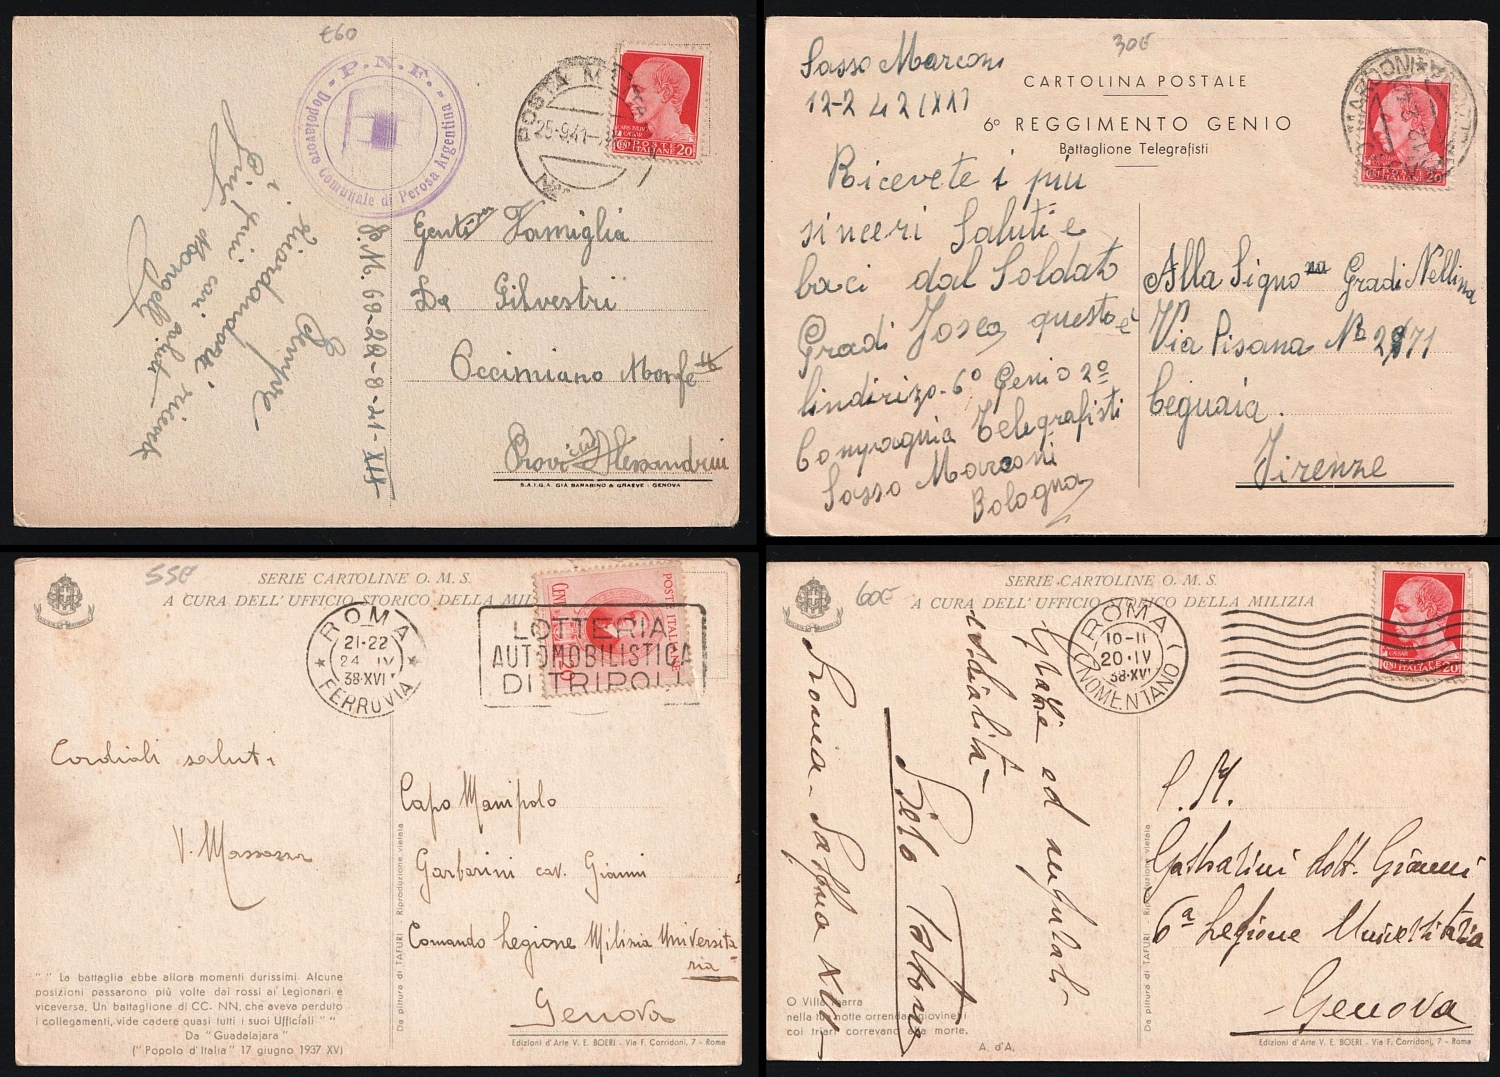 €60
P.N.F.
Dopolavoro Comunale di Perosa Argentina
POSTA M
25·9·41
POSTE
ITALIANE 20
Sempre
ricordandovi
i più cari saluti
P.M. 69-28-8-41-XIX
Famiglia
De Silvestri
Occimiano Monf
Alessandria
S.A.I.G.A. GIÀ BARABINO & GRAEVE - GENOVA
Sasso Marconi
12-2 42 (XX)
30€
CARTOLINA POSTALE
6° REGGIMENTO GENIO
Battaglione Telegrafisti
Ricevete i piu
sinceri Saluti e
baci dal Soldato
Gradi Josea questo è
lindirizo-6° Genio 2°
Compagnia Telegrafisti
Sasso Marconi
Bologna
Alla Signora Gradi Nellina
Via Pisana
Legnaia
Firenze
55€
SERIE CARTOLINE O. M. S.
A CURA DELL'UFFICIO STORICO DELLA MIL
ROMA
21-22
24 IV
38·XVI
FERROVIA
LOTTERIA
AUTOMOBILISTICA
DI TRIPOLI
POSTE ITALIANE
CENT 20
Cordiali saluti
V.
Capo Manipolo
Garbarini cav. Gianni
Comando Legione Milizia Universita
ria
Genova
" " La battaglia ebbe allora momenti durissimi. Alcune
posizioni passarono più volte dai rossi ai Legionari e
viceversa. Un battaglione di CC. NN. che aveva perduto
i collegamenti, vide cadere quasi tutti i suoi Ufficiali " "
Da "Guadalajara"
("Popolo d'Italia" 17 giugno 1937 XV)
Da pittura di TAFURI - Riproduzione vietata
Edizioni d'Arte V. E. BOERI - Via F. Corridoni, 7 - Roma
60€
SERIE CARTOLINE O. M. S.
A CURA DELL'UFFICIO STORICO DELLA MILIZIA
ROMA
10-11
20·IV
38·XVI
(NOMENTANO)
ITALIANE 20
Grazie ed
P.M.
Garbarini dott. Gianni
6ª Legione Universitaria
Genova
O Villa
nella notte orrenda i giovinetti
coi triari correvano alla morte.
A. d'A.
Da pittura di TAFURI - Riproduzione vietata
Edizioni d'Arte V. E. BOERI - Via F. Corridoni, 7 - Roma